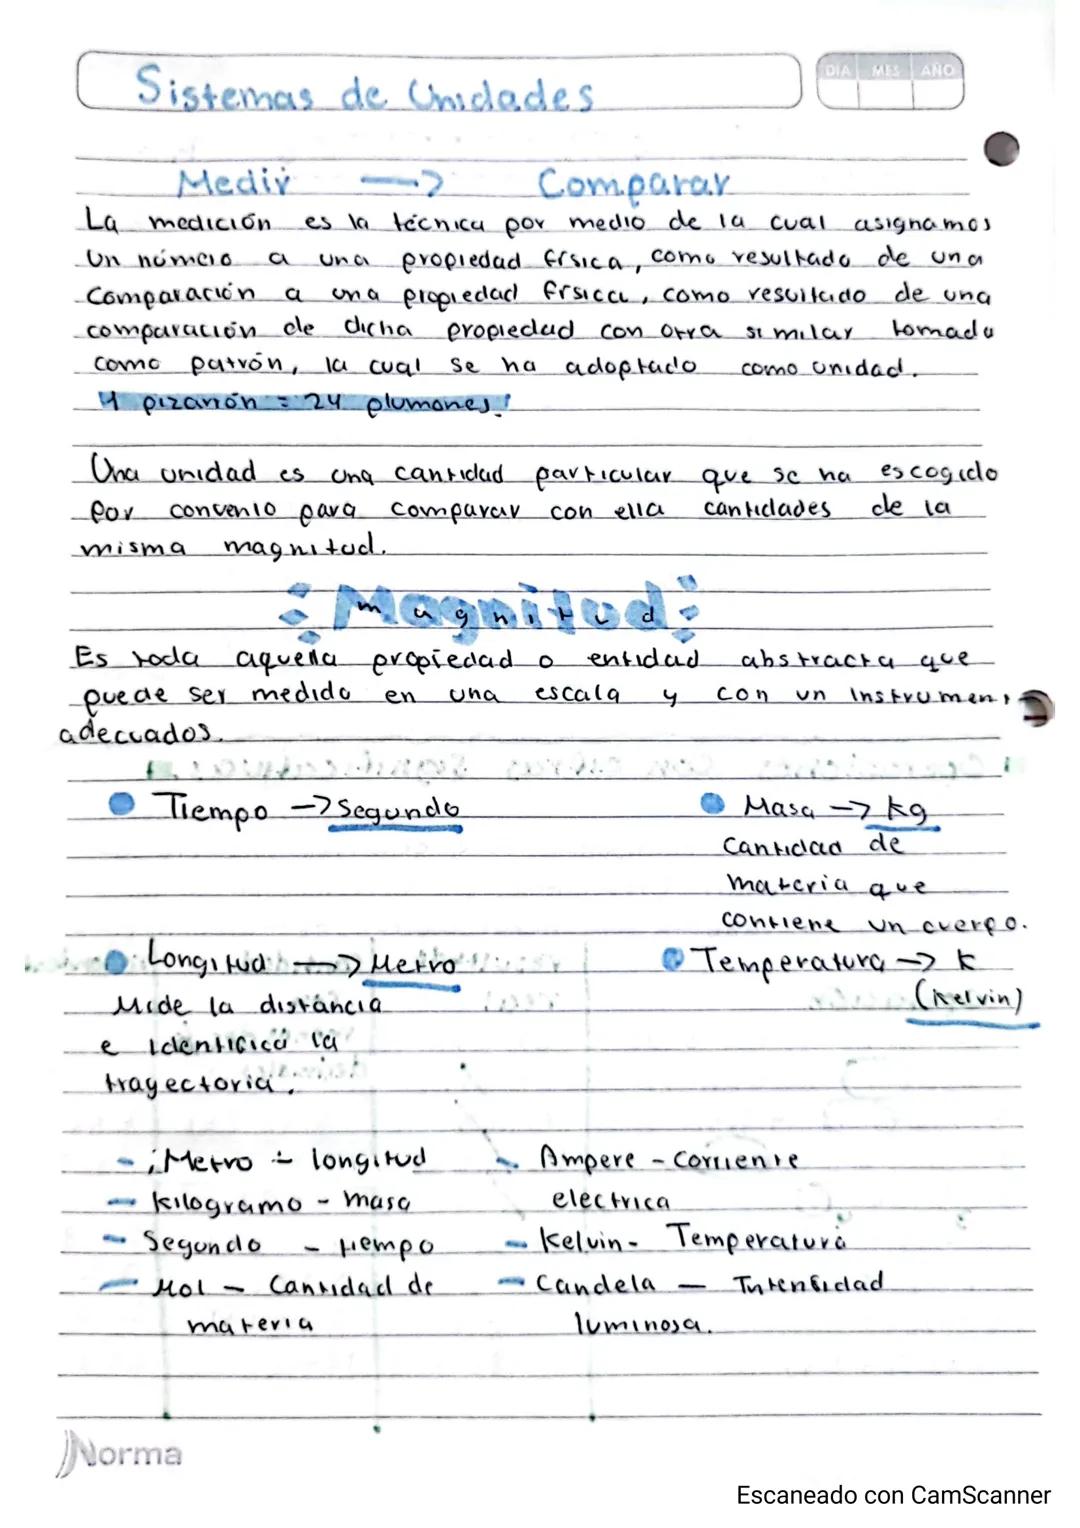 Sistemas de Unidades
DIA MES AÑO
Medir → Comparar
La medición es la técnica por medio de la cual asignamos
un número a una propiedad física, como resultado de una
comparación a una propiedad física, como resultado de una
comparación de dicha propiedad con otra similar tomada
como patrón, la cual se ha adoptado como unidad.
1 pizarrón = 24 plumones!
Una unidad es una cantidad particular que se ha escogido
por convenio para comparar con ella cantidades de la
misma magnitud.
Magnitud
Es toda aquella propiedad o entidad abstracta que
puede ser medida en una escala y con un instrumen
adecuados.
Tiempo → Segundo
Masa → kg
Cantidad de
materia que
contiene un cuerpo.
Longitud → Metro
Mide la distancia
e identifica la
trayectoria.
Temperatura → K
(Kelvin)
- ¡Metro - longitud
- Kilogramo - masa
- Segundo - tiempo
- Mol - Cantidad de
materia
- Ampere - Corriente
eléctrica
- Kelvin - Temperatura
- Candela - Intensidad
luminosa.
Norma
Escaneado con CamScanner